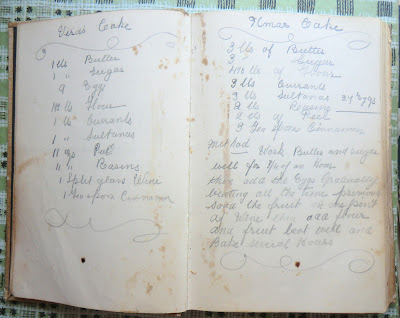 Veras Cake
1 lb Butter
1 " Sugar
9 Eggs
1¼ lb Flour
1 lb Currants
1 " Sultanas
11 ozs Peel
" " Raisins
1 Split glass Wine
1 Teaspoon Cinnamon
Xmas Cake
3 lb of Butter
3 " Sugar
lbs of Flour
3 lb Currants
3 lbs Sultanas
2 lb Raisins
2 lb of Peel
3 Teaspoon Cinnamon
Method Work Butter and sugar
well for ¾ of an hour
then add the Eggs Gradually
beating all the time previously
soak the fruit in one pint
of Wine then add flour
and fruit beat well and
Bake several Hours